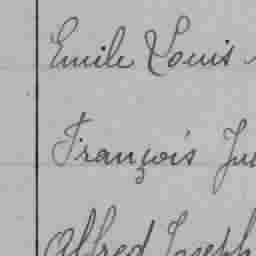 Emile Louis
François
Alfred Joseph